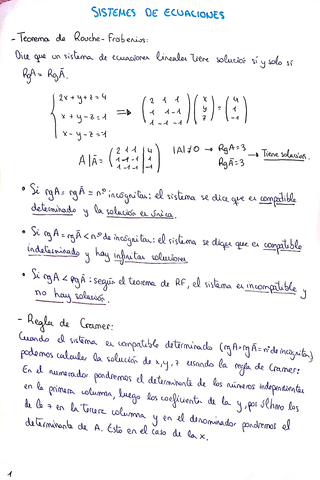 SISTEMES DE ECUACIONES
- Teorema de Rouche-Frobenius:
Dice que un sistema de ecuaciones lineales tiene solución si y solo si
RgA = RgĀ.
2x+y+z=4
x+y-z=1
x-y-z=1
⟹ (2 1 1 / 1 1 -1 / 1 -1 -1) (x / y / z) = (4 / 1 / -1)
A|Ā = (2 1 1 | 4 / 1 -1 -1 | 1 / 1 -1 -1 | 1) |A|≠0 → RgA=3 RgĀ=3 → Tiene solución.
• Si rgA = rgĀ = nº incógnitas: el sistema se dice que es compatible
determinado y la solución es única.
• Si rgA = rgĀ < nº de incógnitas: el sistema se dice que es compatible
indeterminado y hay infinitas soluciones
• Si rgA < rgĀ: según el teorema de RF, el sistema es incompatible y
no hay solución.
- Regla de Cramer:
Cuando el sistema es compatible determinado (rgA=rgĀ=nº de incógnitas)
podemos calcular la solución de x, y, z usando la regla de Cramer:
En el numerador pondremos el determinante de los números independientes
en la primera columna, luego los coeficientes de la y, por último los
de la z en la tercera columna y en el denominador pondremos el
determinante de A. Esto en el caso de la x.
1